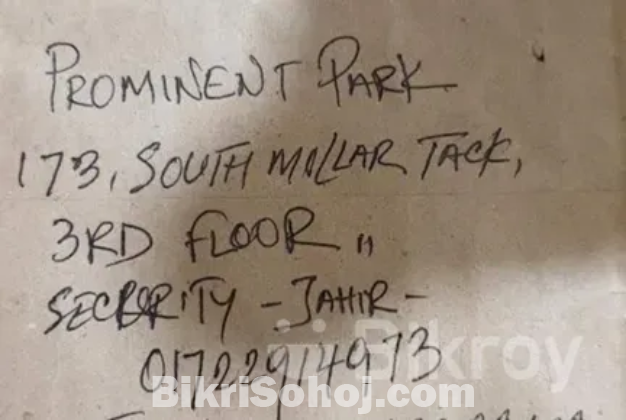 PROMINENT PARK
173, SOUTH MOLLAR TACK,
3RD FLOOR "
SECURITY - JAHIR -
01722914973
Bikroy
BikriSohoj.com